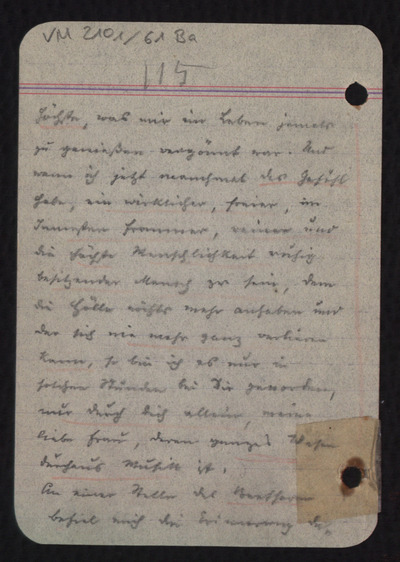 VM 2101/61 Ba
115
Höchste, was mir im Leben jemals
zu genießen vergönnt war. Und
wenn ich jetzt manchmal das Gefühl
habe, ein wirklicher, freier, im
Innersten frommer, reiner und
die höchste Menschlichkeit ruhig
besitzender Mensch zu sein, dem
die Hölle nichts mehr anhaben und
der sich nie mehr ganz verlieren
kann, so bin ich es nur in
solchen Stunden bei Dir geworden,
nur durch Dich allein, meine
liebe Frau, deren ganzes Wesen
durchaus Musik ist.
An einer Stelle des Beethoven
befiel mich die Erinnerung da-